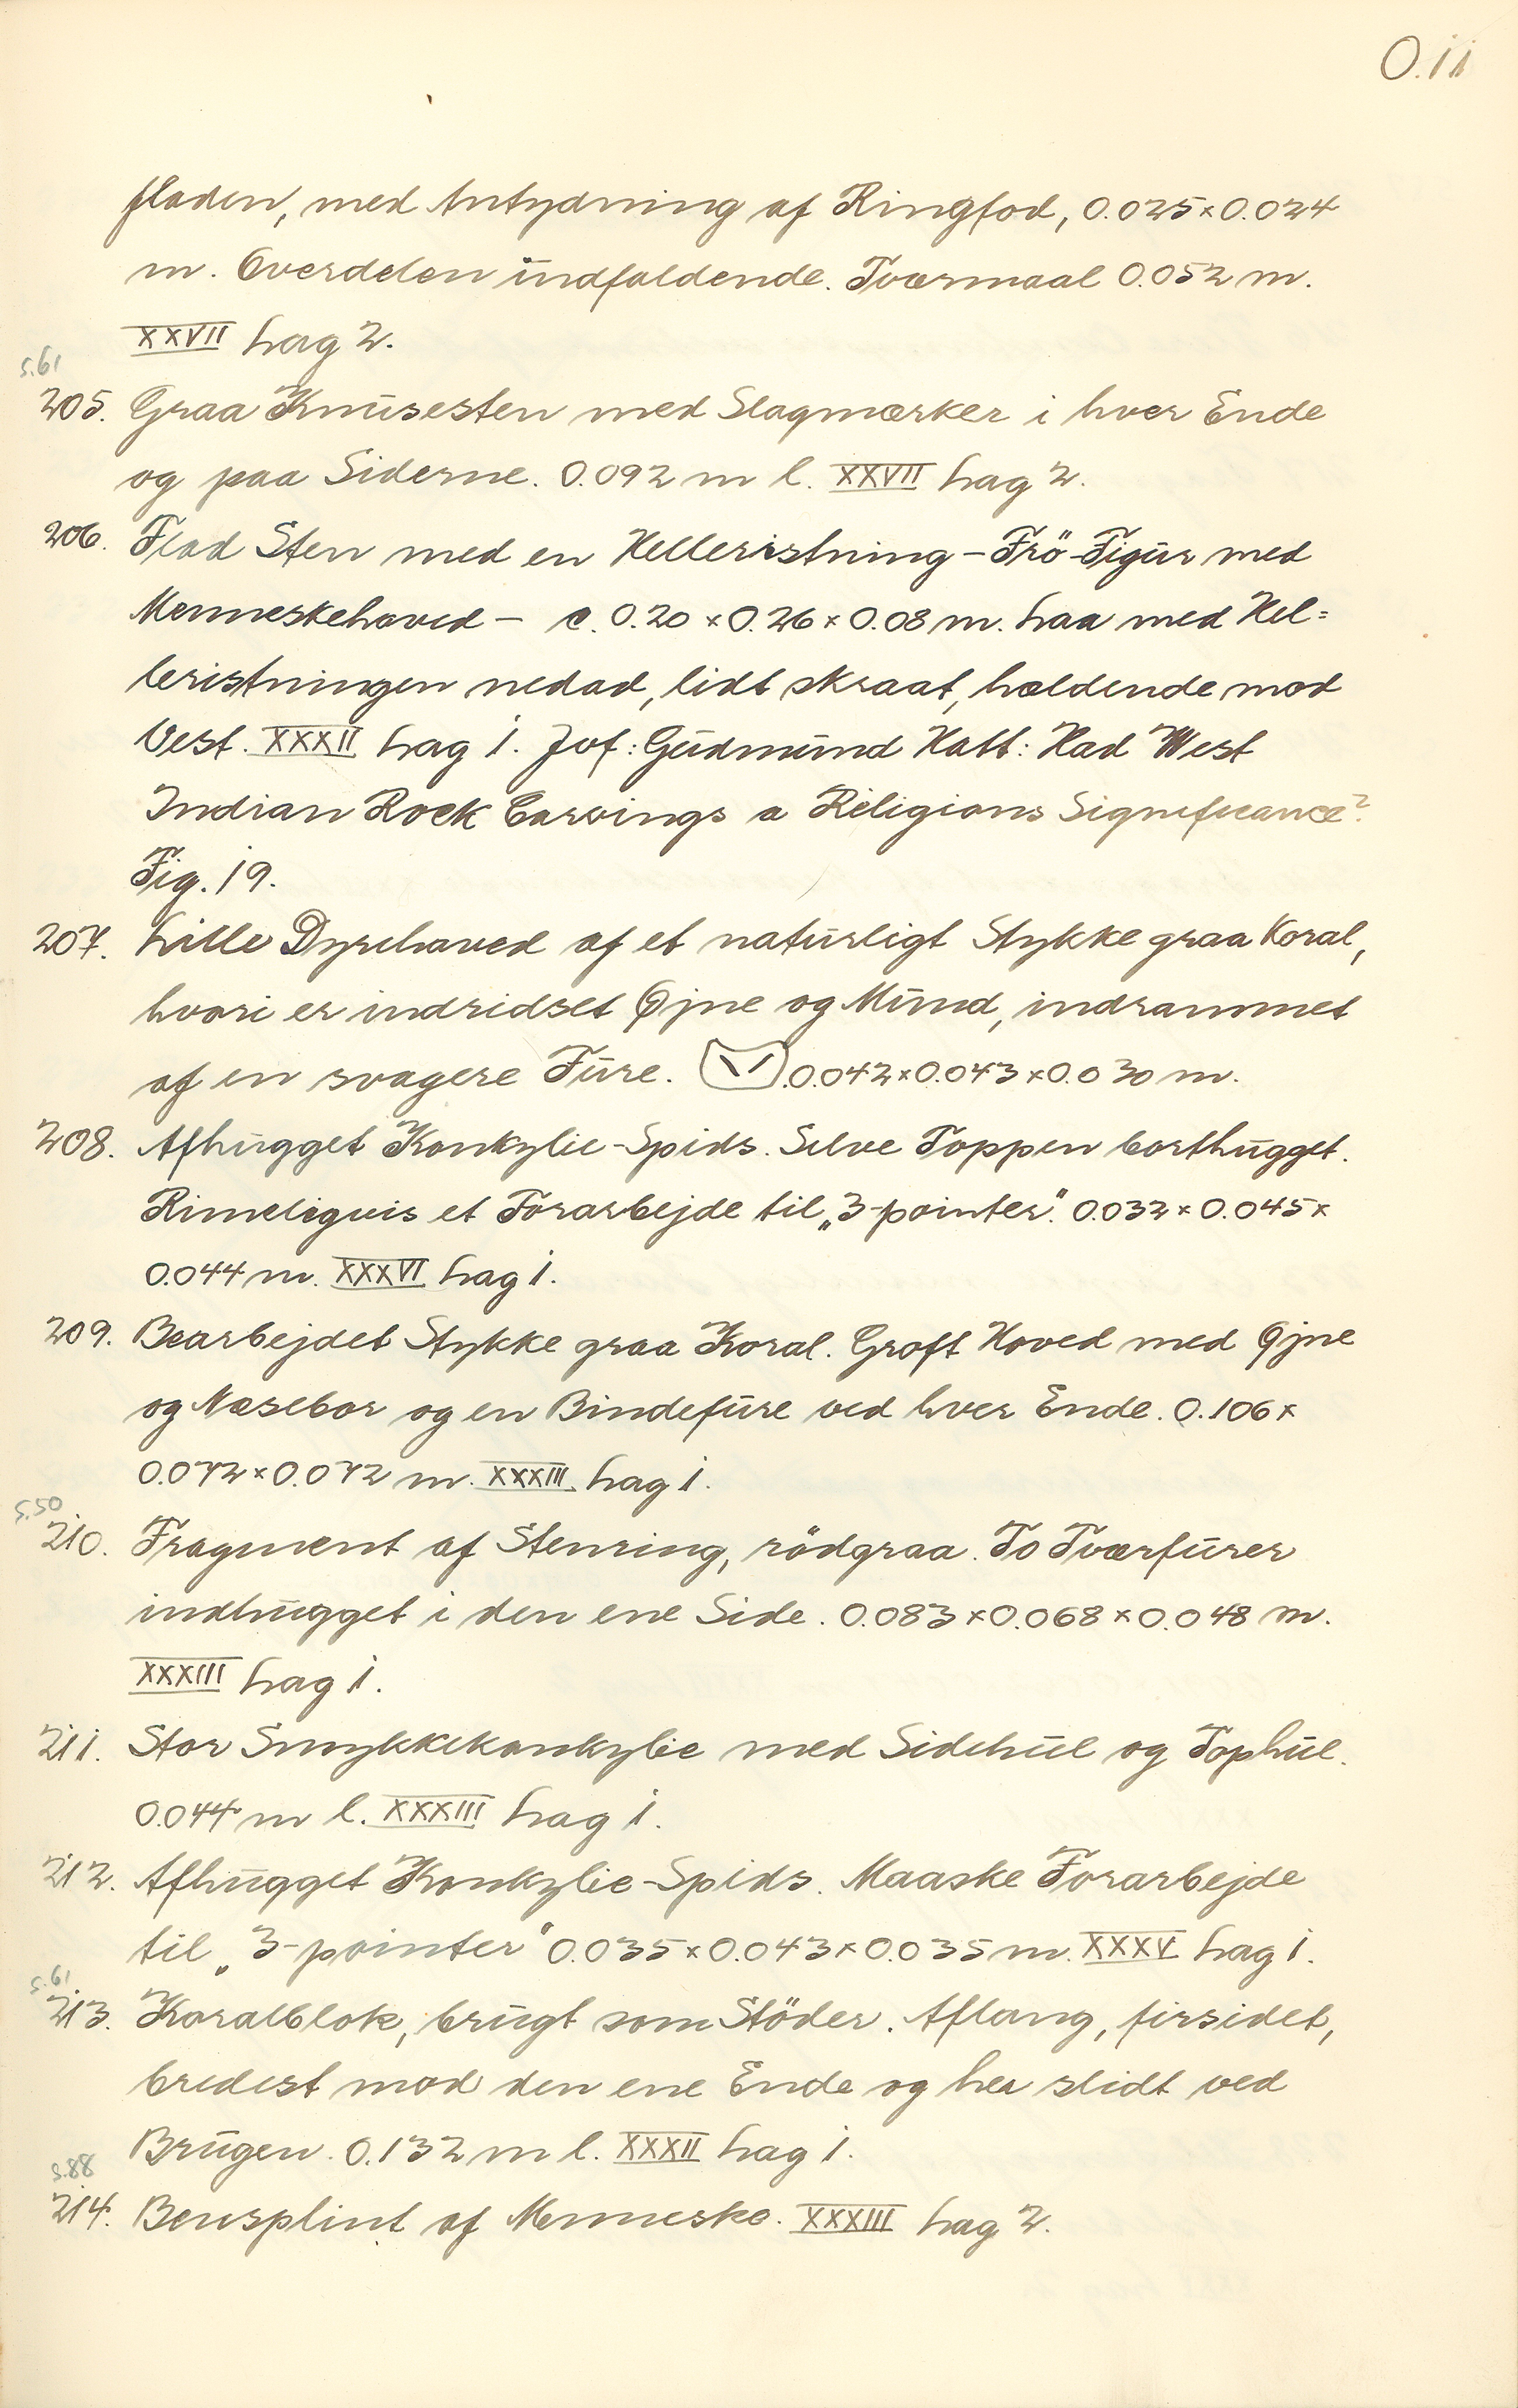 O.11
fladen, med Antydning af Ringfod, 0.025×0.024
m. Overdelen indfaldende. Tværmaal 0.052 m.
XXVII Lag 2.
S.61
205. Graa Knusesten med Slagmærker i hver Ende
og paa Siderne. 0.092 m l. XXVII Lag 2.
206. Flad Sten med en Helleristning – Frö-Figur med
Menneskehoved – c. 0.20 × 0.26 × 0.08 m. Laa med Hel=
leristningen nedad, lidt skraat, hældende mod
Vest. XXXII Lag 1. Jvf: Gudmund Hatt: Had West
Indian Rock Carvings a Religious Significance?
Fig. 19.
207. Lille Dyrehoved af et naturligt Stykke graa Koral,
hvori er indridset Øjne og Mund, indrammet
af en svagere Fure. 0.042×0.043×0.030 m.
208. Afhugget Konkylie-Spids. Selve Toppen borthugget.
Rimeligvis et Forarbejde til „3-pointer”. 0.032×0.045×
0.044 m. XXXVI Lag 1.
209. Bearbejdet Stykke graa Koral. Groft Hoved med Øjne
og Næsebor og en Bindefure ved hver Ende. 0.106×
0.072×0.072 m. XXXIII Lag 1.
S.50
210. Fragment af Stenring, rödgraa. To Tværfurer
indhugget i den ene Side. 0.083×0.068×0.048 m.
XXXIII Lag 1.
211. Stor Smykkekonkylie med Sidehul og Tophul.
0.044 m l. XXXIII Lag 1.
212. Afhugget Konkylie-Spids. Maaske Forarbejde
til „3-pointer” 0.035×0.043×0.035 m. XXXV Lag 1.
S.61
213. Koralblok, brugt som Stöder. Aflang, firsidet,
bredest mod den ene Ende og her slidt ved
Brugen. 0.132 m l. XXXII Lag 1.
S.88
214. Bensplint af Menneske. XXXIII Lag 2.